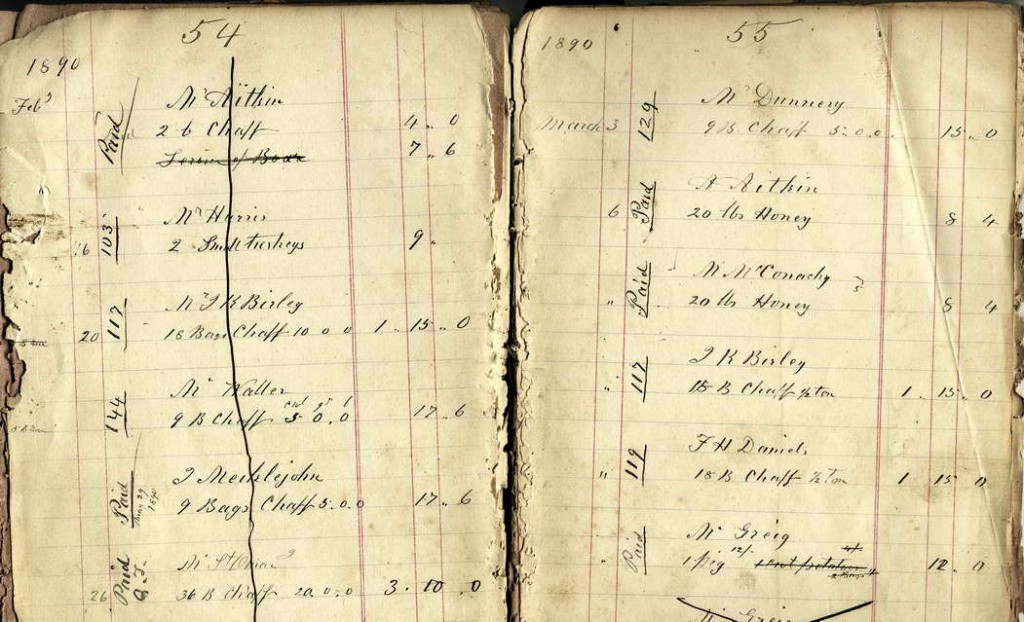 54
1890
Feb
Mr Aitkin
Paid
2 b Chaff 4 .. 0
7 .. 6
Mr Harris
16 103 2 Small turkeys 9 ..
Mr J K Birley
20 117 18 Bags Chaff 10 0 0 1 .. 15 .. 0
Mr Waller
144 9 B Chaff 5 0 0 17 .. 6
J Meiklejohn
Paid May 29 1890
9 Bags Chaff 5 .. 0 .. 0 17 .. 6
Mr
26 Paid 36 B Chaff 20 .. 0 .. 0 3 .. 10 .. 0
55
1890
Mr Dunnery
March 3 129 9 B Chaff 5 .. 0 .. 0 .. 15 .. 0
A Aitkin
6 Paid 20 lbs Honey 8 4
Mr McConachy
" Paid 20 lb Honey 8 4
J K Birley
" 117 18 B Chaff ½ ton 1 .. 15 .. 0
F H Daniels
" 119 18 B Chaff ½ Ton 1 15 0
Mr Greig
" Paid 1 Pig 12/- 12 .. 0
Mr Greig